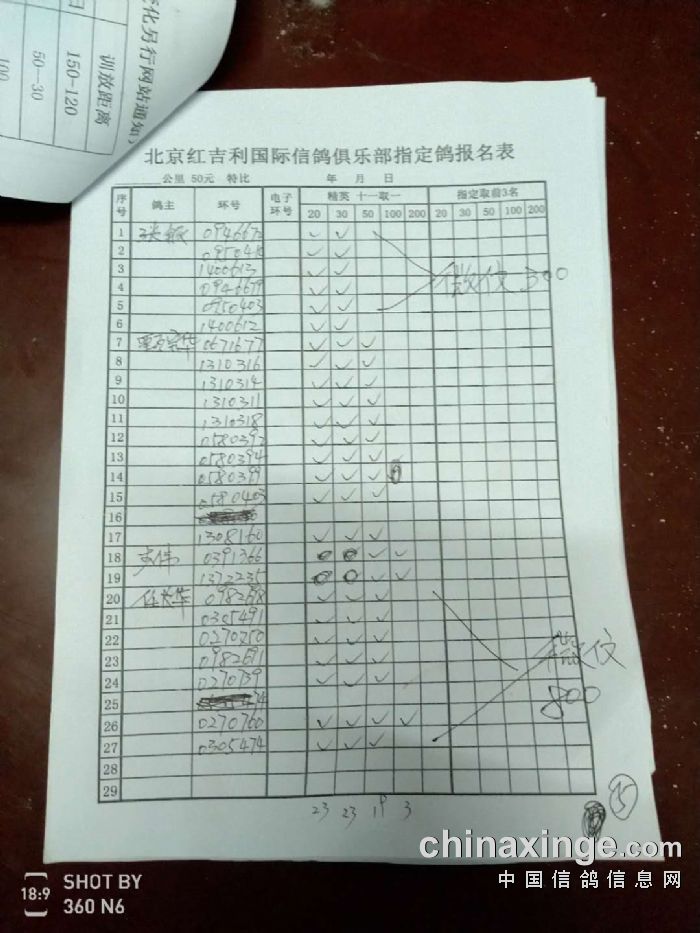 训放距离
150-120
50—30
100
化另行网站通知
北京红吉利国际信鸽俱乐部指定鸽报名表
公里 50元 特比 年 月 日
序号 鸽主 环号 电子环号 精英 十一取一 指定取前3名
20 30 50 100 200 20 30 50 100 200
1 0946672 ✓ ✓
2 ✓ ✓
3 1400613 ✓ ✓
4 0946679 ✓ ✓ 微付 300
5 0950403 ✓ ✓
6 1400612 ✓ ✓
7 0671677 ✓ ✓ ✓
8 1310316 ✓ ✓ ✓
9 1310314 ✓ ✓ ✓
10 1310311 ✓ ✓ ✓
11 1310318 ✓ ✓ ✓
12 0580392 ✓ ✓ ✓
13 0580394 ✓ ✓ ✓
14 0580399 ✓ ✓ ✓
15 0580403 ✓ ✓ ✓
16
17 1308160 ✓ ✓ ✓
18 0391366 ✓ ✓
19 1372235 ✓ ✓
20 任长华 098268 ✓ ✓ ✓
21 0305491 ✓ ✓ ✓
22 0270750 ✓ ✓ ✓
23 0982691 ✓ ✓ ✓ 微付
24 0270739 ✓ ✓ ✓
25 800
26 0270760 ✓ ✓ ✓ ✓
27 0305474 ✓ ✓ ✓
28
29
23 23 19 3
chinaxinge.com
中国信鸽信息网
18:9
SHOT BY
360 N6